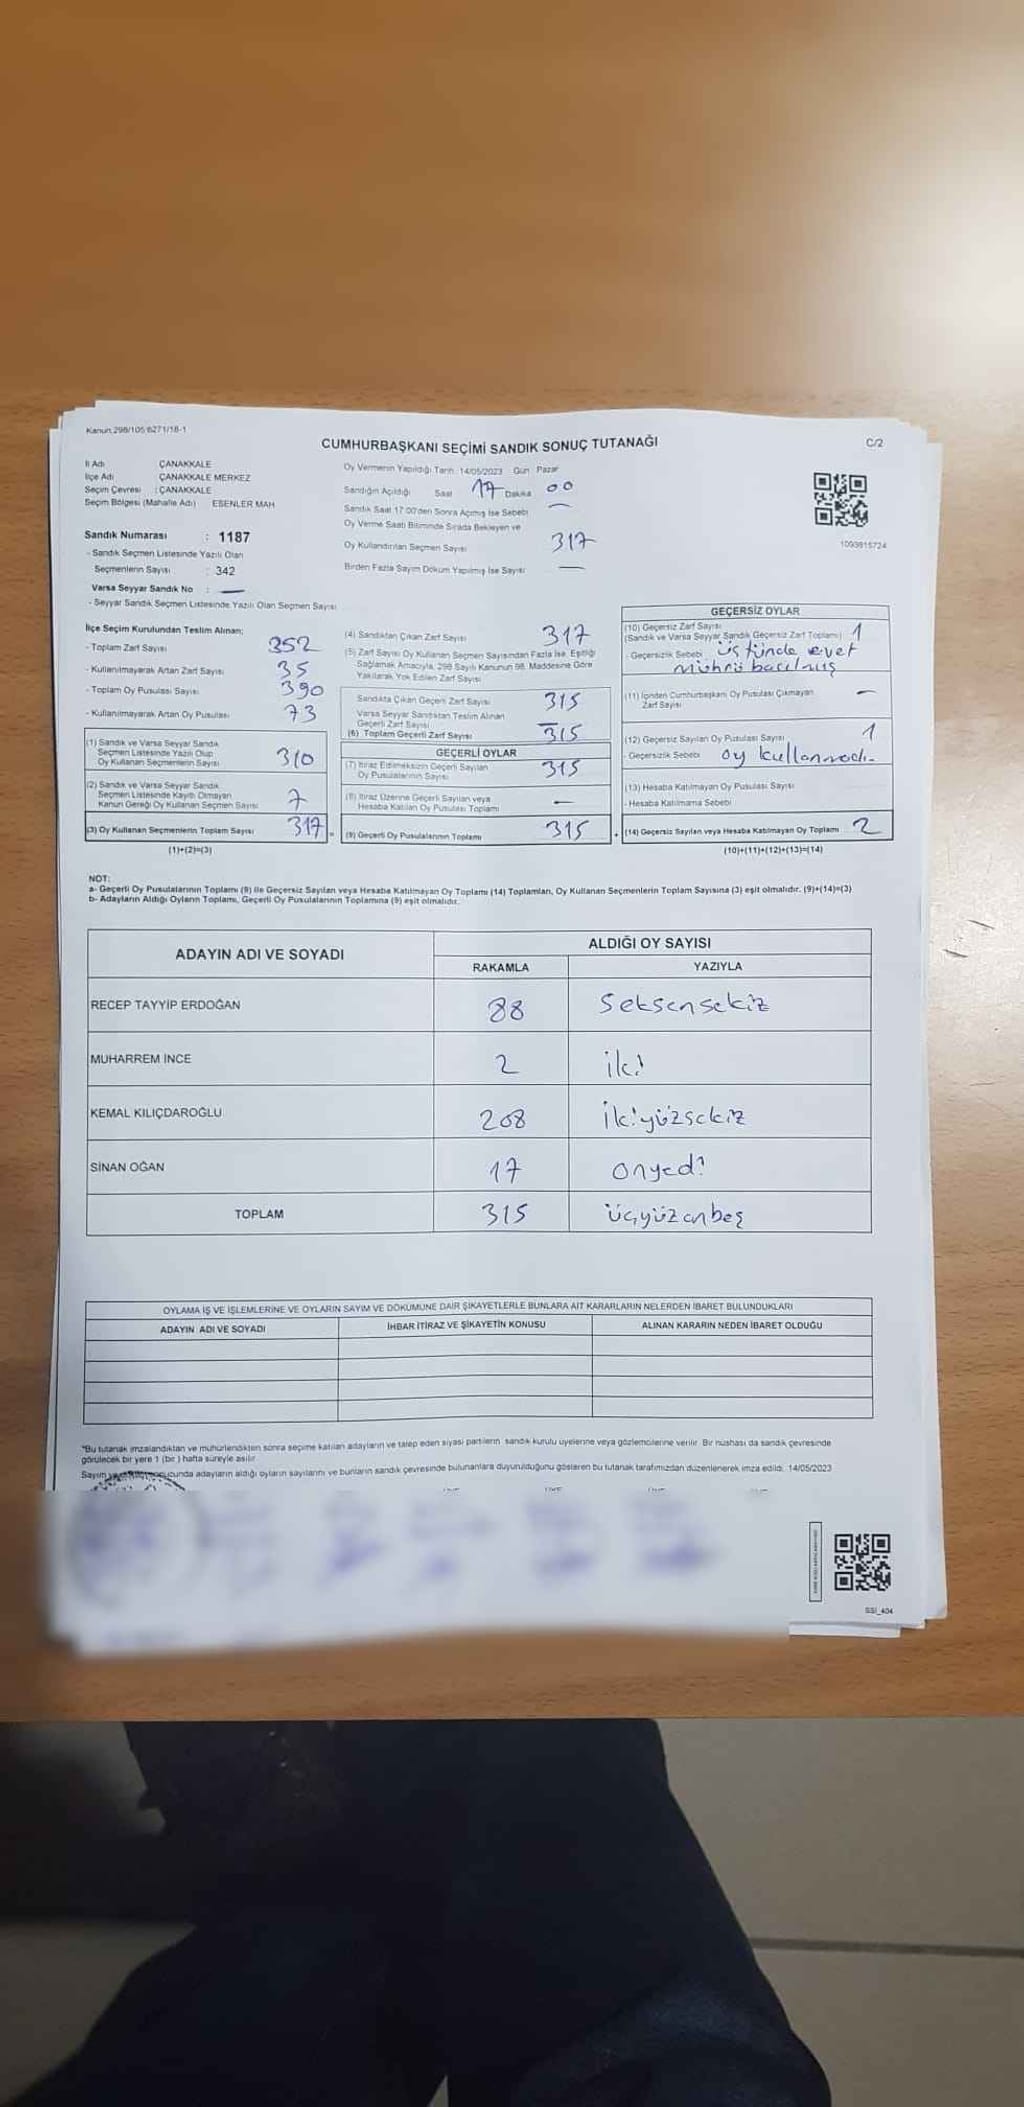 Kanun:298/105 6271/18-1
CUMHURBAŞKANI SEÇİMİ SANDIK SONUÇ TUTANAĞI
C/2
İl Adı ÇANAKKALE
İlçe Adı ÇANAKKALE MERKEZ
Seçim Çevresi : ÇANAKKALE
Seçim Bölgesi (Mahalle Adı) ESENLER MAH
Sandık Numarası : 1187
- Sandık Seçmen Listesinde Yazılı Olan
Seçmenlerin Sayısı : 342
Varsa Seyyar Sandık No : —
- Seyyar Sandık Seçmen Listesinde Yazılı Olan Seçmen Sayısı
Oy Vermenin Yapıldığı Tarih: 14/05/2023 Gün: Pazar
Sandığın Açıldığı Saat 17 Dakika 00
Sandık Saat 17:00'den Sonra Açılmış İse Sebebi —
Oy Verme Saati Bitiminde Sırada Bekleyen ve
Oy Kullandırılan Seçmen Sayısı 317
Birden Fazla Sayım Döküm Yapılmış İse Sayısı —
1093815724
İlçe Seçim Kurulundan Teslim Alınan;
- Toplam Zarf Sayısı 352
- Kullanılmayarak Artan Zarf Sayısı 35
- Toplam Oy Pusulası Sayısı 390
- Kullanılmayarak Artan Oy Pusulası 73
(1) Sandık ve Varsa Seyyar Sandık
Seçmen Listesinde Yazılı Olup
Oy Kullanan Seçmenlerin Sayısı 310
(2) Sandık ve Varsa Seyyar Sandık
Seçmen Listesinde Kayıtlı Olmayan
Kanun Gereği Oy Kullanan Seçmen Sayısı 7
(3) Oy Kullanan Seçmenlerin Toplam Sayısı 317
(1)+(2)=(3)
(4) Sandıktan Çıkan Zarf Sayısı 317
(5) Zarf Sayısı Oy Kullanan Seçmen Sayısından Fazla İse, Eşitliği
Sağlamak Amacıyla, 298 Sayılı Kanunun 98. Maddesine Göre
Yakılarak Yok Edilen Zarf Sayısı
Sandıkta Çıkan Geçerli Zarf Sayısı 315
Varsa Seyyar Sandıktan Teslim Alınan
Geçerli Zarf Sayısı —
(6) Toplam Geçerli Zarf Sayısı 315
GEÇERLİ OYLAR
(7) İtiraz Edilmeksizin Geçerli Sayılan
Oy Pusulalarının Sayısı 315
(8) İtiraz Üzerine Geçerli Sayılan veya
Hesaba Katılan Oy Pusulası Toplamı —
(9) Geçerli Oy Pusulalarının Toplamı 315
GEÇERSİZ OYLAR
(10) Geçersiz Zarf Sayısı
(Sandık ve Varsa Seyyar Sandık Geçersiz Zarf Toplamı) 1
- Geçersizlik Sebebi üstünde evet
mührü basılmış
(11) İçinden Cumhurbaşkanı Oy Pusulası Çıkmayan
Zarf Sayısı —
(12) Geçersiz Sayılan Oy Pusulası Sayısı 1
- Geçersizlik Sebebi oy kullanmadı.
(13) Hesaba Katılmayan Oy Pusulası Sayısı
- Hesaba Katılmama Sebebi
(14) Geçersiz Sayılan veya Hesaba Katılmayan Oy Toplamı 2
(10)+(11)+(12)+(13)=(14)
NOT:
a- Geçerli Oy Pusulalarının Toplamı (9) ile Geçersiz Sayılan veya Hesaba Katılmayan Oy Toplamı (14) Toplamları, Oy Kullanan Seçmenlerin Toplam Sayısına (3) eşit olmalıdır. (9)+(14)=(3)
b- Adayların Aldığı Oyların Toplamı, Geçerli Oy Pusulalarının Toplamına (9) eşit olmalıdır.
ADAYIN ADI VE SOYADI ALDIĞI OY SAYISI
RAKAMLA YAZIYLA
RECEP TAYYİP ERDOĞAN 88 Seksensekiz
MUHARREM İNCE 2 iki
KEMAL KILIÇDAROĞLU 208 ikiyüzsekiz
SİNAN OĞAN 17 onyedi
TOPLAM 315 üçyüzonbeş
OYLAMA İŞ VE İŞLEMLERİNE VE OYLARIN SAYIM VE DÖKÜMÜNE DAİR ŞİKAYETLERLE BUNLARA AİT KARARLARIN NELERDEN İBARET BULUNDUKLARI
ADAYIN ADI VE SOYADI İHBAR İTİRAZ VE ŞİKAYETİN KONUSU ALINAN KARARIN NEDEN İBARET OLDUĞU
*Bu tutanak imzalandıktan ve mühürlendikten sonra seçime katılan adayların ve talep eden siyasi partilerin sandık kurulu üyelerine veya gözlemcilerine verilir. Bir nüshası da sandık çevresinde
görülecek bir yere 1 (bir) hafta süreyle asılır.
Sayım ucunda adayların aldığı oyların sayılarını ve bunların sandık çevresinde bulunanlara duyurulduğunu gösteren bu tutanak tarafımızdan düzenlenerek imza edildi. 14/05/2023
SSİ_404